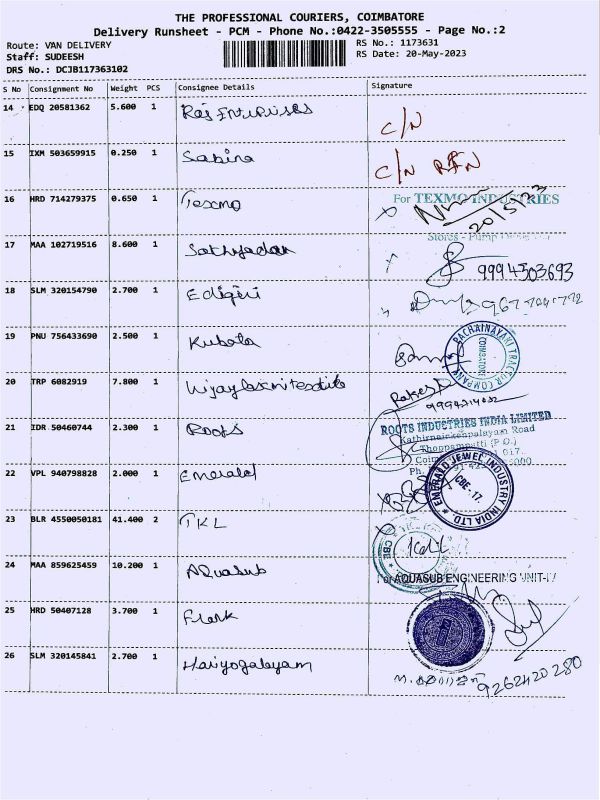 THE PROFESSIONAL COURIERS, COIMBATORE
Delivery Runsheet - PCM - Phone No.:0422-3505555 - Page No.:2
Route: VAN DELIVERY
Staff: SUDEESH
DRS No.: DCJB117363102
RS No.: 1173631
RS Date: 20-May-2023
S No Consignment No Weight PCS Consignee Details Signature
14 EDQ 20581362 5.600 1 Raj Enterprises C/N
15 IXM 503659915 0.250 1 Sabina C/N
16 HRD 714279375 0.650 1 Texmo For TEXMO INDUSTRIES
20/5/23
17 MAA 102719516 8.600 1 9994503693
18 SLM 320154790 2.700 1 Edigiri
19 PNU 756433690 2.500 1 Kubota PACHAINAYAKI TRACTOR COMPANY COIMBATORE
20 TRP 6082919 7.800 1 Vijaylaxmitextile
21 IDR 50460744 2.300 1 Roots ROOTS INDUSTRIES INDIA LIMITED
Kathirnaickenpalayam Road
Thoppampatti (P.O.)
22 VPL 940798828 2.000 1 Emerald EMERALD JEWEL INDUSTRY INDIA LTD. CBE-17.
23 BLR 4550050181 41.400 2 TKL CBE
24 MAA 859625459 10.200 1 Aquasub For AQUASUB ENGINEERING UNIT-IV
25 HRD 50407128 3.700 1
26 SLM 320145841 2.700 1 9262420280